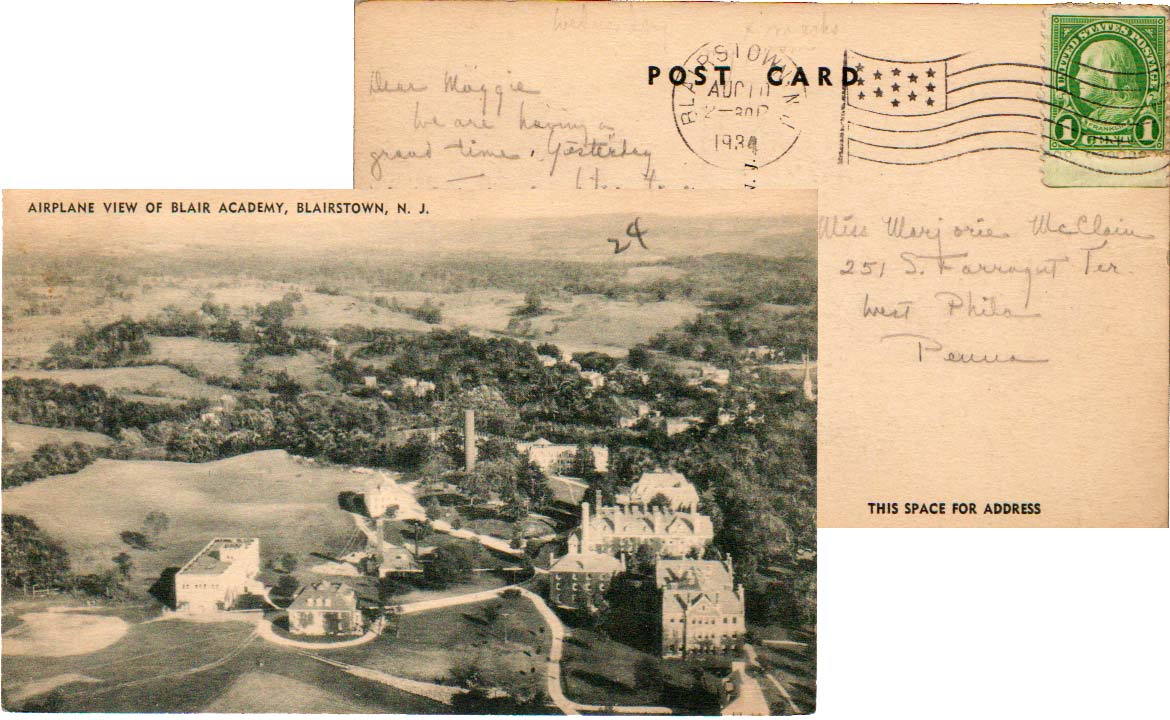 POST CARD
BLAIRSTOWN N.J.
AUG 10
1934
UNITED STATES POSTAGE
FRANKLIN
1 CENT 1
Dear Maggie
We are having a
grand time. Yesterday
Miss Marjorie McClain
251 S. Farragut Ter.
West Phila
Penna
THIS SPACE FOR ADDRESS
AIRPLANE VIEW OF BLAIR ACADEMY, BLAIRSTOWN, N. J.
24